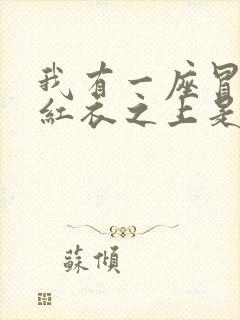 我有一座冒
紅衣之上是
蘇傾